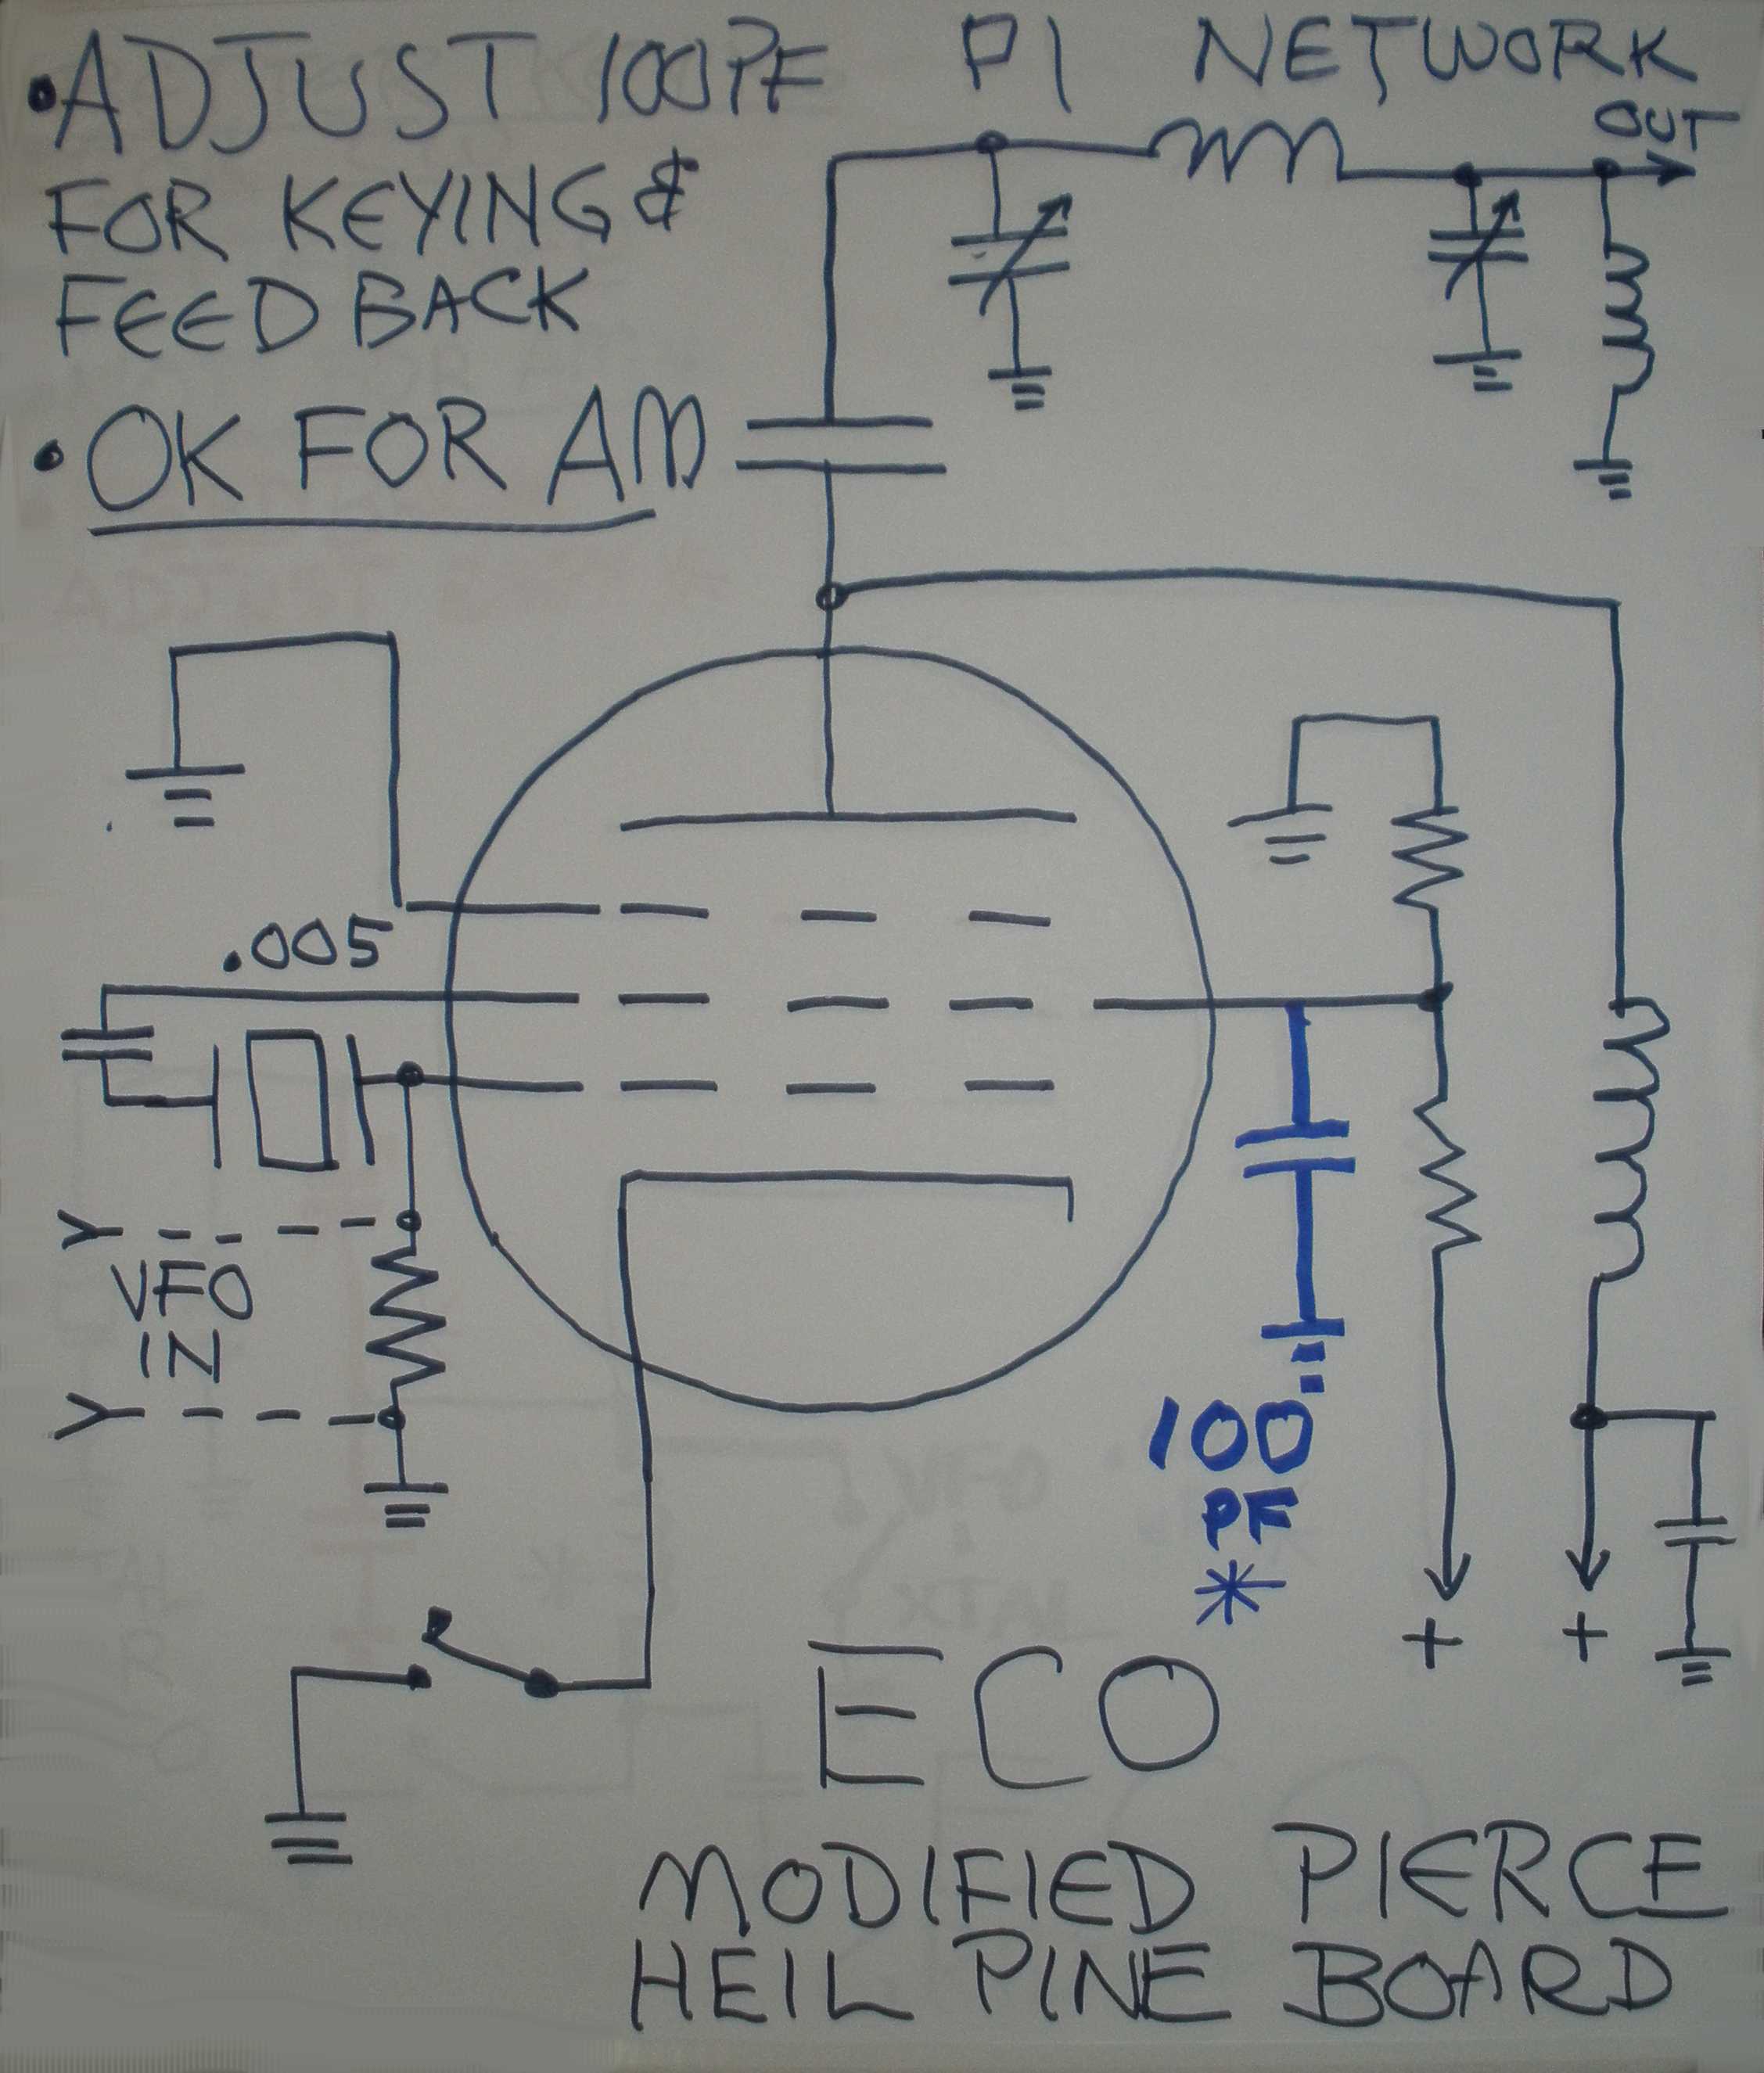 •ADJUST 100PF
FOR KEYING &
FEEDBACK
•OK FOR AM
PI NETWORK
OUT
.005
VFO
IN
100
PF
*
+ +
ECO
MODIFIED PIERCE
HEIL PINE BOARD